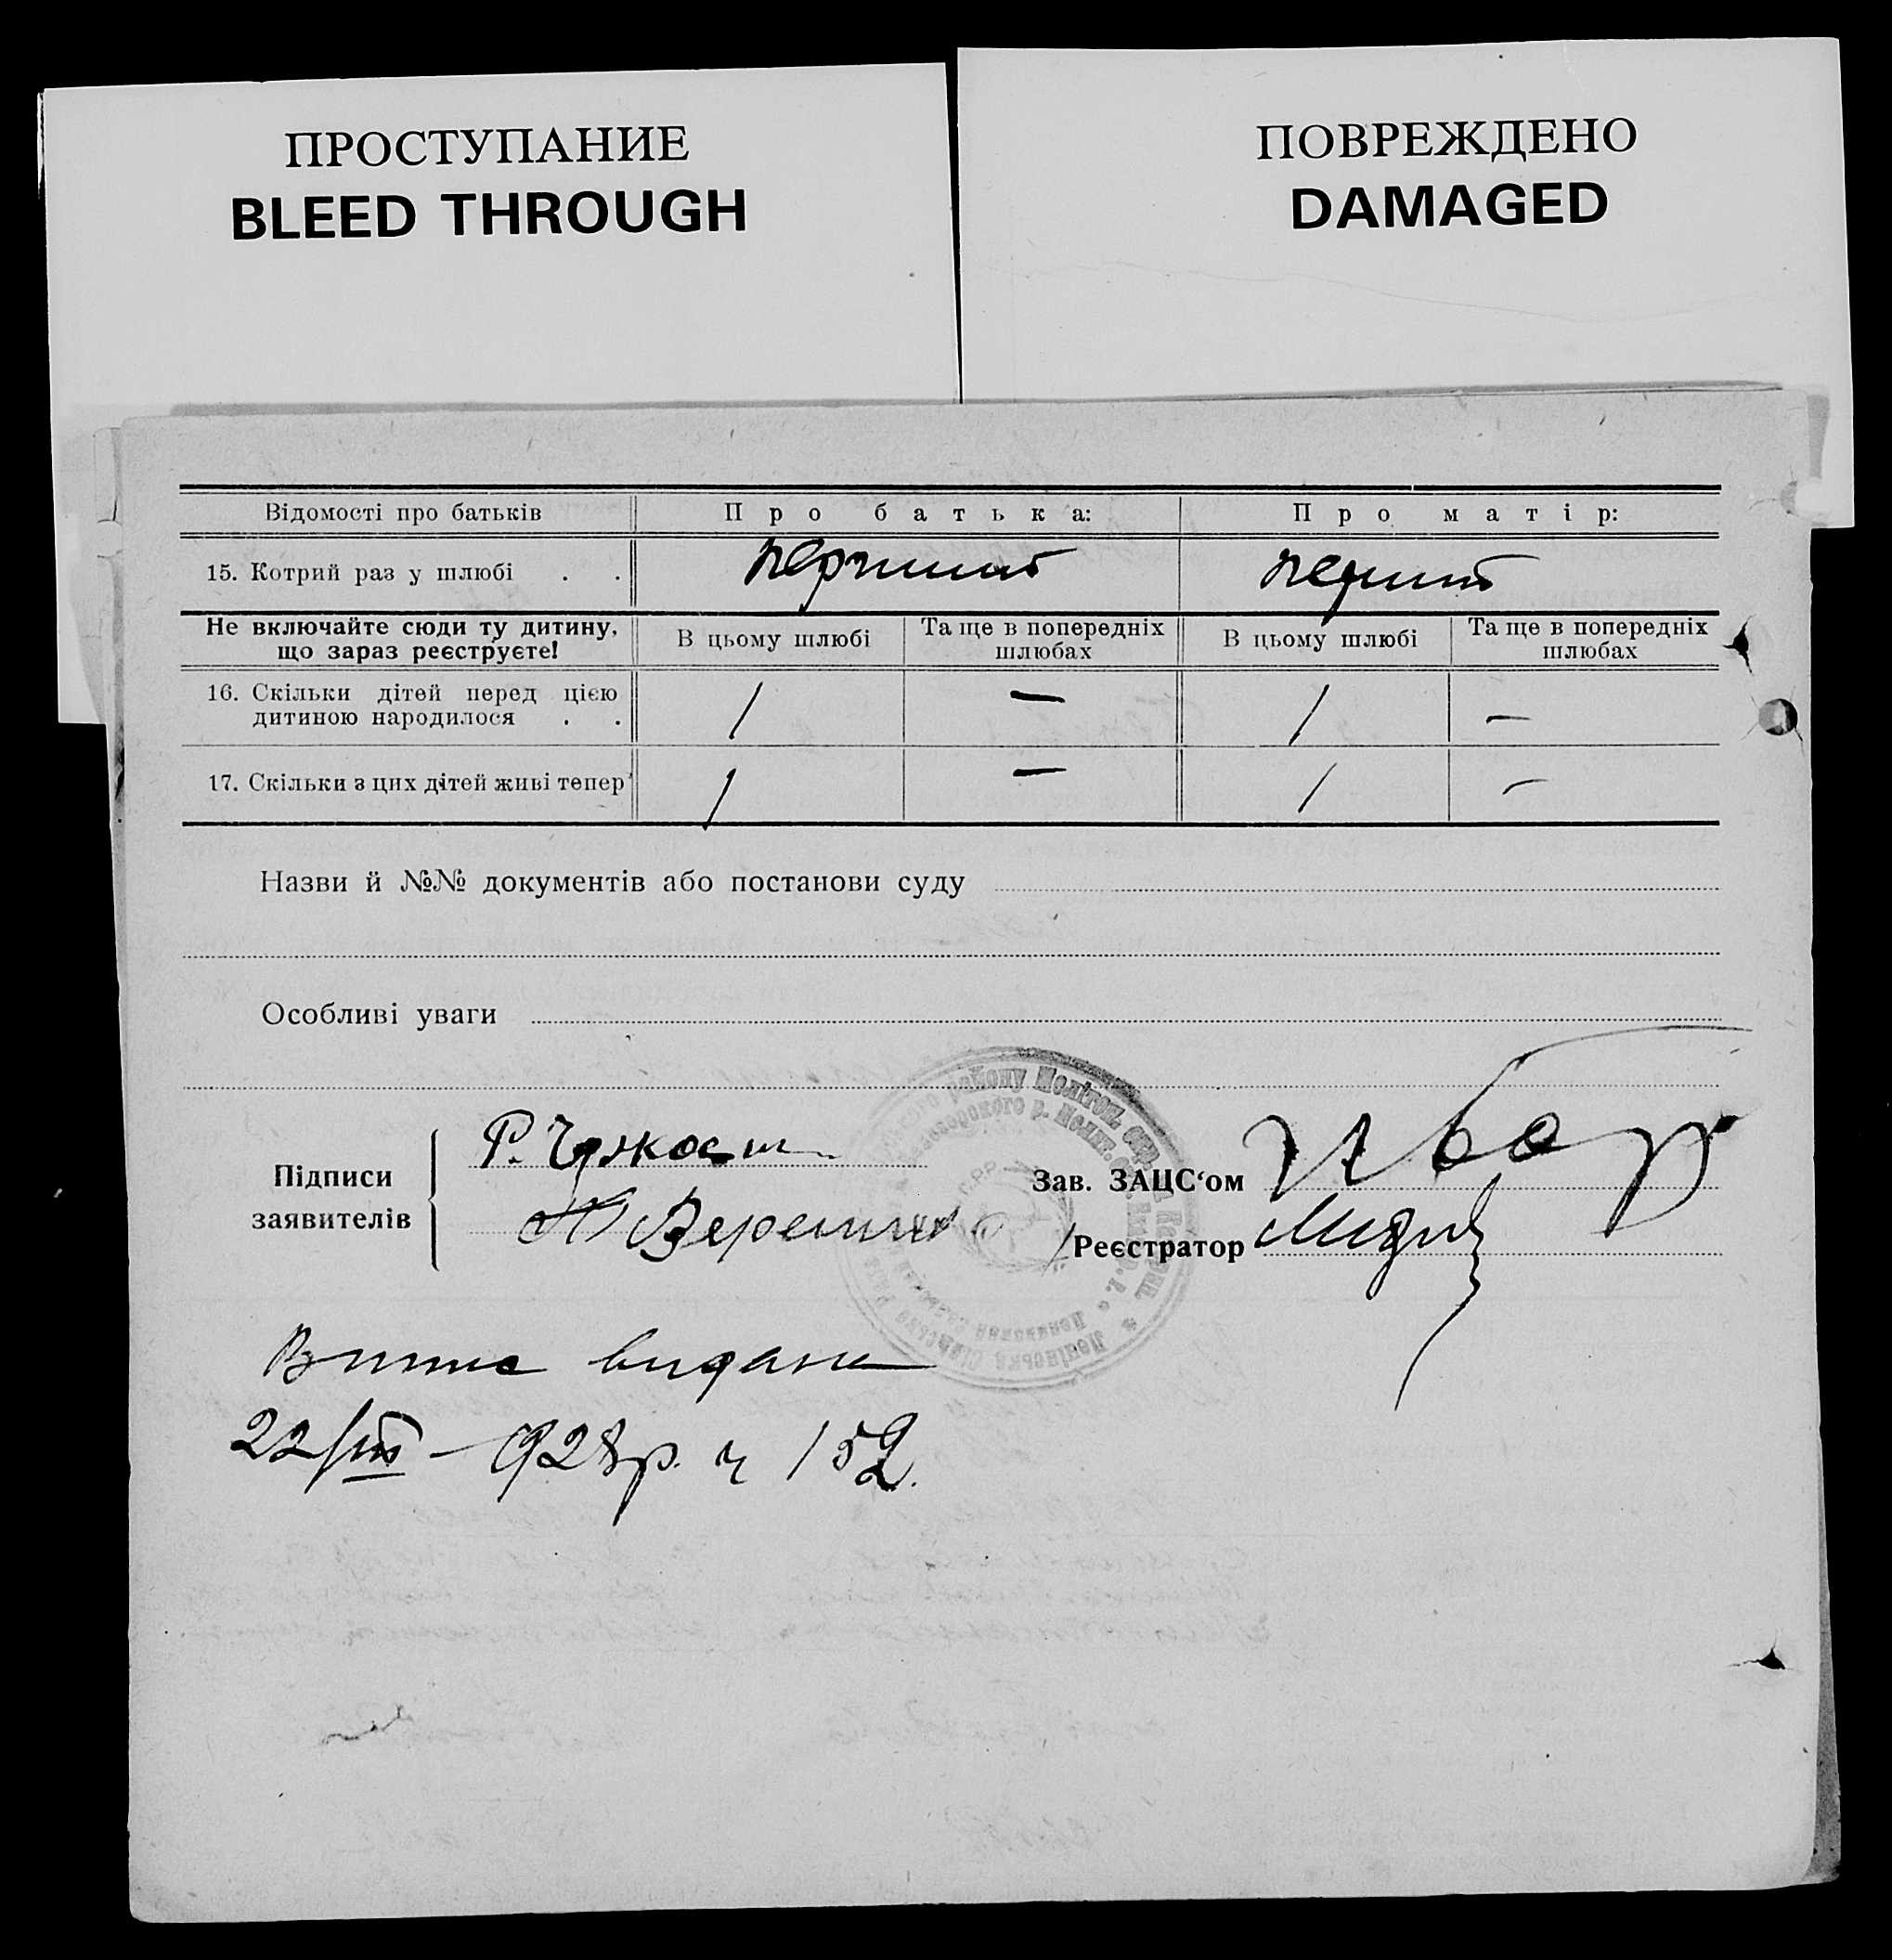 ПРОСТУПАНИЕ
BLEED THROUGH
ПОВРЕЖДЕНО
DAMAGED
Відомості про батьків Про батька: Про матір:
15. Котрий раз у шлюбі . . перший перший
Не включайте сюди ту дитину, що зараз реєструєте! В цьому шлюбі Та ще в попередніх шлюбах В цьому шлюбі Та ще в попередніх шлюбах
16. Скільки дітей перед цією дитиною народилося . . 1 — 1 —
17. Скільки з цих дітей живі тепер 1 — 1 —
Назви й №№ документів або постанови суду
Особливі уваги
Підписи заявителів
Р.
Зав. ЗАЦС‘ом
Реєстратор
району Меліт
Випис видана
22/III – 928 р. ч 152.